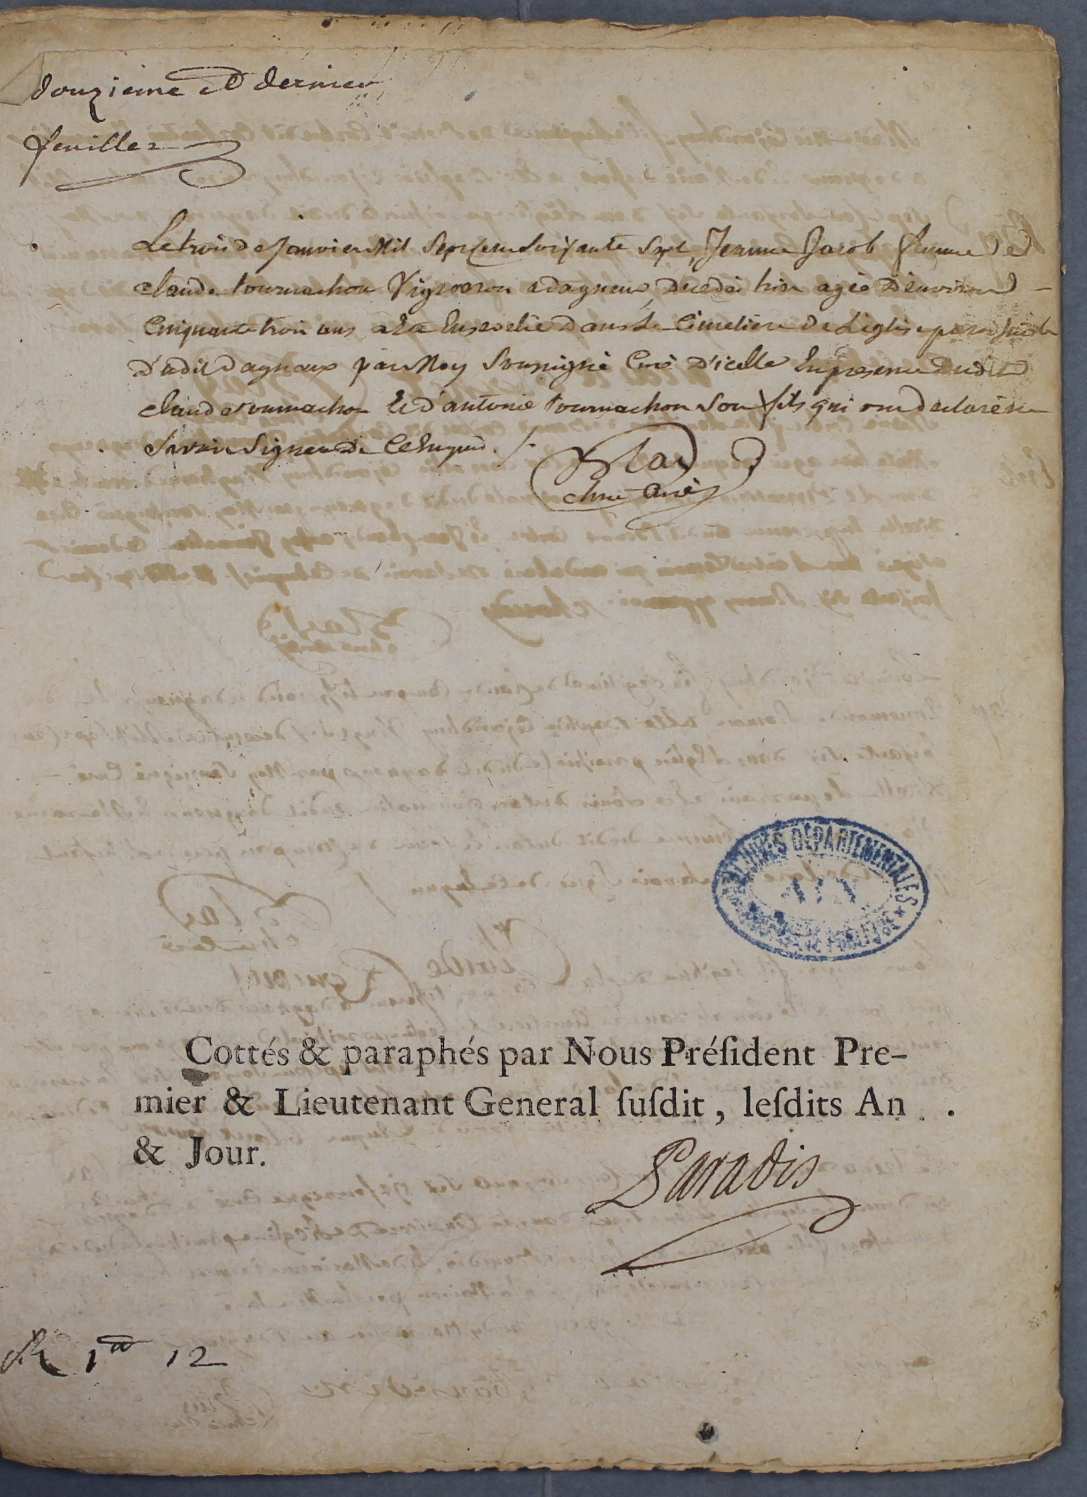 douzieme et dernier
feuillet
Le trois de Janvier Mil Sept Cent Soixante Sept, Jeanne Jacob femme de
claude tournachon Vigneron a dagneux, decedée hier agée d'environ
Cinquante trois ans a été Ensevelie dans Le Cimetiere de L'église paroissiale
dudit dagneux par Moy Soussigné Curé d'icelle En presence dudit
claude tournachon Et d'antoine tournachon Son fils qui ont declaré ne
Savoir Signer de Ce Enquis.
Curé
ARCHIVES DÉPARTEMENTALES
AIN
Cottés & paraphés par Nous Préſident Pre-
mier & Lieutenant General ſuſdit, leſdits An
& Jour.
Paradis
12